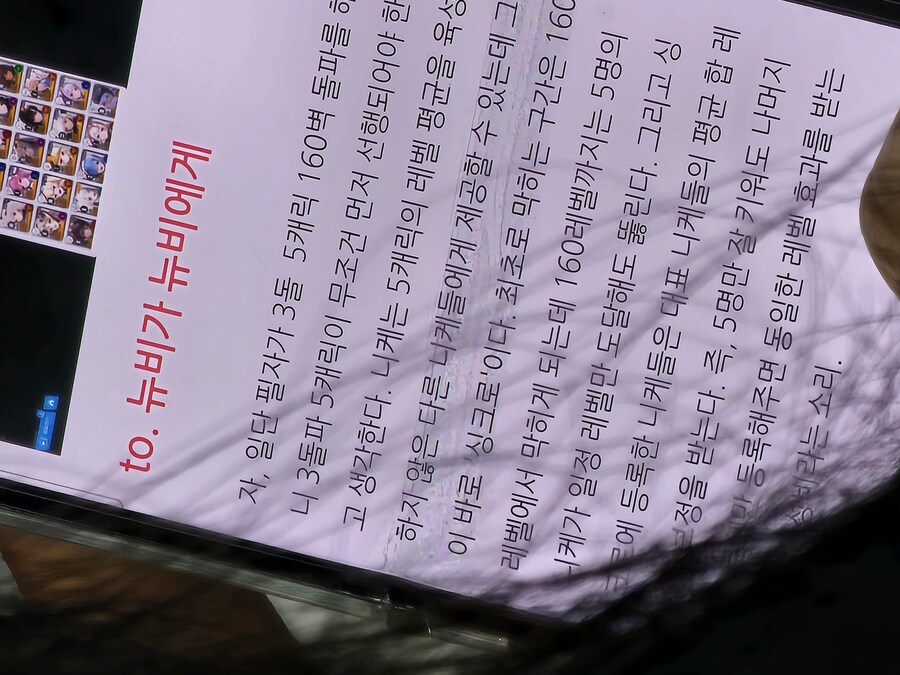 to. 뉴비가 뉴비에게
자, 일단 필자가 3돌 5캐릭 160벽 돌파를
니 3돌파 5캐릭이 무조건 먼저 선행되어야 한
고 생각한다. 니케는 5캐릭의 레벨 평균을 육성
하지 않은 다른 니케들에게 제공할 수 있는데 그
이 바로 '싱크로'이다. 최초로 막히는 구간은 160
레벨에서 막히게 되는데 160레벨까지는 5명의
니케가 일정 레벨만 도달해도 뚫린다. 그리고 싱
크로에 등록한 니케들은 대표 니케들의 평균 합 레
보정을 받는다. 즉, 5명만 잘 키워도 나머지
등록해주면 동일한 레벨 효과를 받는
소리.